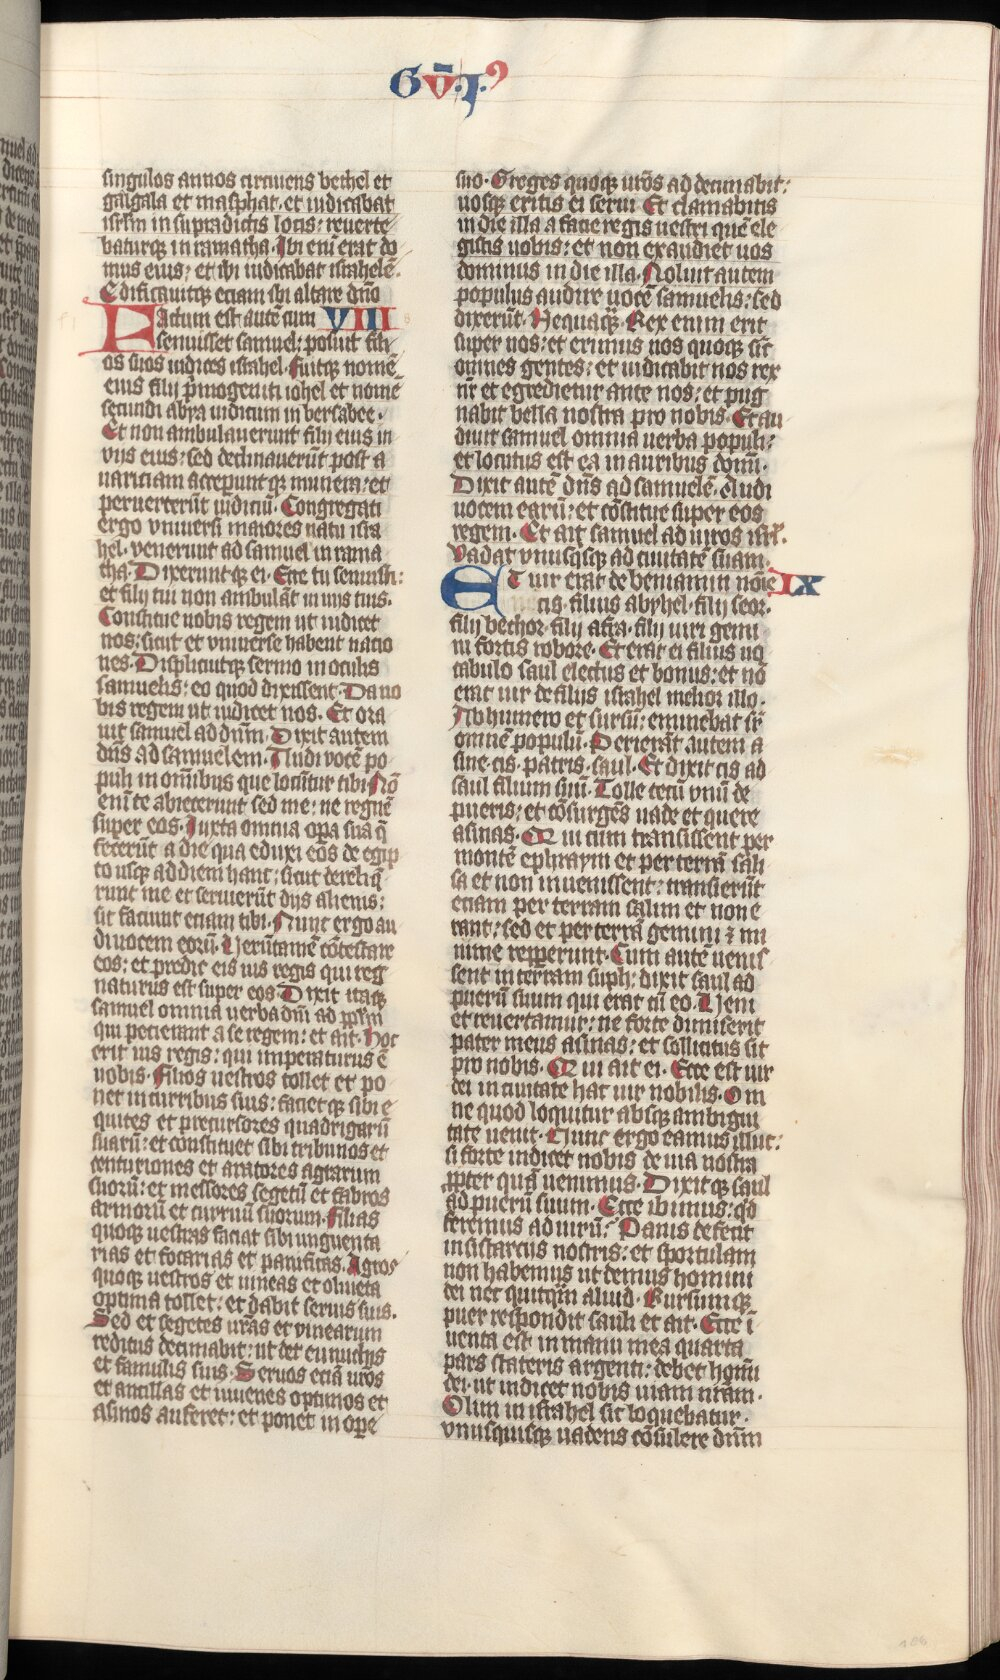 Gũ·I·ꝰ
singulos annos circuiens bethel et
galgala et masphat· et iudicabat
isrl̃m in supradictis locis: reuerte
baturqꝫ in ramatha· Ibi eni erat do
mus eius: et ibi iudicabat israhelē·
Edificauitqꝫ eciam ibi altare dño
Factum est autē cum VIII
senuisset samuel: posuit fili
os suos iudices israhel· fuitqꝫ nomē
eius filij primogeniti iohel et nomē
secundi abya iudicum in bersabee·
Et non ambulauerunt filij eius in
vijs eius: sed declinauerūt post a
uariciam acceperunt qꝫ munera: et
peruerterūt iudiciū· Congregati
ergo vniuersi maiores natu isra
hel· venerunt ad samuel in rama
tha· Dixerunt qꝫ ei· Ecce tu senuisti:
et filij tui non ambulāt in vijs tuis·
Constitue nobis regem ut iudicet
nos: sicut et vniuerse habent nacio
nes· Displicuitqꝫ sermo in oculis
samuelis: eo quod dixissent· Da no
bis regem ut iudicet nos· Et ora
uit samuel ad dñm· Dixit autem
dñs ad samuelem· Audi vocē po
puli in omībus que locūtur tibi· Nō
enī te abiecerunt sed me: ne regnē
super eos· Iuxta omnia opa sua q̄
fecerūt a die qua eduxi eos de egip
to usqꝫ ad diem hanc: sicut dereliq̄
runt me et seruierūt dijs alienis:
sic faciunt eciam tibi· Nunc ergo au
di uocem eorū· Uerūtamē cōtestare
eos: et predic eis ius regis qui reg
naturus est super eos· Dixit itaqꝫ
samuel omnia verba dñi ad pp̄lm̄
qui pecierant a se regem: et ait· hoc
erit ius regis: qui imperaturus ē
uobis· Filios uestros tollet et po
net in curribus suis: faciet qꝫ sibi e
quites et precursores quadrigarū
suarū: et constituet sibi tribunos et
centuriones et aratores agrarum
suorū: et messores segetū et fabros
armorū et curruū suorum· Filias
quoqꝫ uestras faciat sibi unguenta
rias et focarias et panificas· Agros
quoqꝫ uestros et uineas et oliueta
optima tollet: et dabit seruis suis·
Sed et segetes ur̄as et vinearum
reditus decimabit: ut det eunuchis
et famulis suis· Seruos eciā ur̄os
et ancillas et iuuenes optimos et
asinos auferet: et ponet in ope
suo· Greges quoqꝫ ur̄os ad decimabit:
uosqꝫ eritis ei serui· Et clamabitis
in die illa a facie regis uestri quē ele
gistis uobis: et non exaudiet uos
dominus in die illa· Noluit autem
populus audire uocē samuelis: sed
dixerūt· Nequaqꝫ· Rex enim erit
super nos: et erimus nos quoqꝫ sic̄
omnes gentes: et iudicabit nos rex
nr̄ et egredietur ante nos: et pug
nabit bella nostra pro nobis· Et au
diuit samuel omnia uerba populi:
et locutus est ea in auribus domi·
Dixit autē dñs ad samuelē· Audi
uocem earū: et cōstitue super eos
regem· Et ait samuel ad uiros isrl̃·
Vadat vnusqsqꝫ ad ciuitatē suam·
ET uir erat de beniamin nōie IX
cis· filius abyhel· filij seor·
filij bechor· filij afra· filij uiri gemi
ni fortis robore· Et erat ei filius uo
cabulo saul electus et bonus: et nō
erat uir de filijs israhel melior illo·
Ab humero et sursū: eminebat sr̄
omnē populū· Perierāt autem a
sine cis· patris· saul· Et dixit cis ad
saul filium suū· Tolle tecū vnū de
pueris: et cōsurgēs uade et quere
asinas· Qui cum transissent per
montē ephraym et per terrā sali
sa et non inuenissent: transierūt
eciam per terram salim et non e
rant: sed et per terrā gemini ⁊ mi
nime repperunt· Cum autē uenis
sent in terram suph: dixit saul ad
puerū suum qui erat cū eo· Ueni
et reuertamur: ne forte dimiserit
pater meus asinas: et sollicitus sit
pro nobis· Qui ait ei· Ecce est uir
dei in ciuitate hac uir nobilis· Om
ne quod loquitur absqꝫ ambigui
tate uenit· Nunc ergo eamus illuc:
si forte indicet nobis de uia nostra
ꝓpter quā uenimus· Dixit qꝫ saul
ad puerū suum· Ecce ibimus: qͥd
feremus ad uirū? Panis defecit
in sistarcijs nostris: et sportulam
non habemus ut demus homini
dei nec quitqͣm aliud· Rursum qꝫ
puer respondit sauli et ait· Ecce ī
uenta est in manu mea quarta
pars stateris argenti: debet homī
dei· ut indicet nobis uiam nr̄am·
Olim in israhel sic loquebatur·
vnusquisqꝫ uadens cōsulere dñm